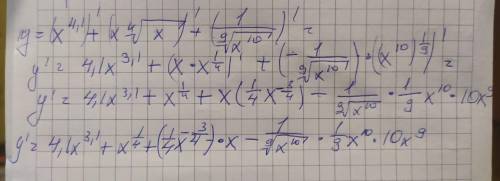 y = (x^{4,1})' + (x ⁴√x)' + (1/⁹√x¹⁰)' =
y' = 4,1x^{3,1} + (x · x^{1/4})' + (-1/⁹√x¹⁰) · ((x¹⁰)^{1/9})' =
y' = 4,1x^{3,1} + x^{1/4} + x(1/4 x^{-3/4}) - 1/⁹√x¹⁰ · 1/9 x¹⁰ · 10x⁹
y' = 4,1x^{3,1} + x^{1/4} + (1/4 x^{-3/4}) · x - 1/⁹√x¹⁰ · 1/9 x¹⁰ · 10x⁹